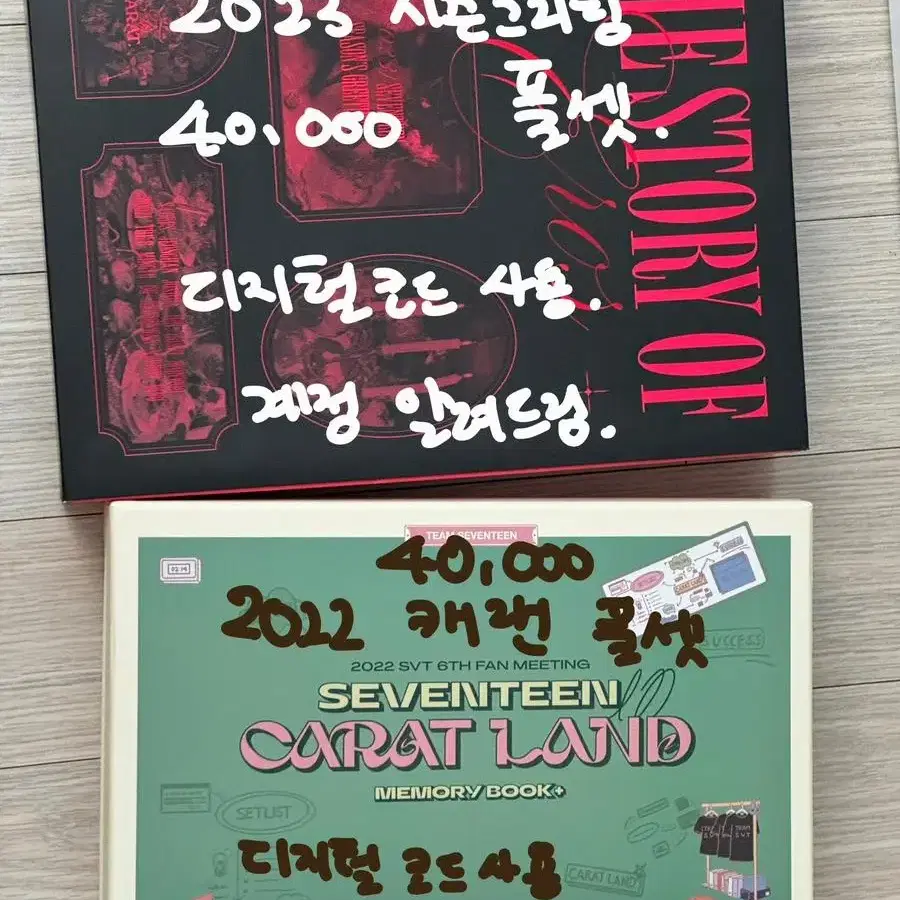 2023 시즌그리팅
40,000 풀셋.
디지털코드 사용.
계정 알려드림.
THE STORY OF
CARAT
TEAM SEVENTEEN
40,000
2022 캐랜 풀셋
SUCCESS
2022 SVT 6TH FAN MEETING
SEVENTEEN
CARAT LAND
MEMORY BOOK+
SETLIST
디지털 코드 사용
CARAT LAND